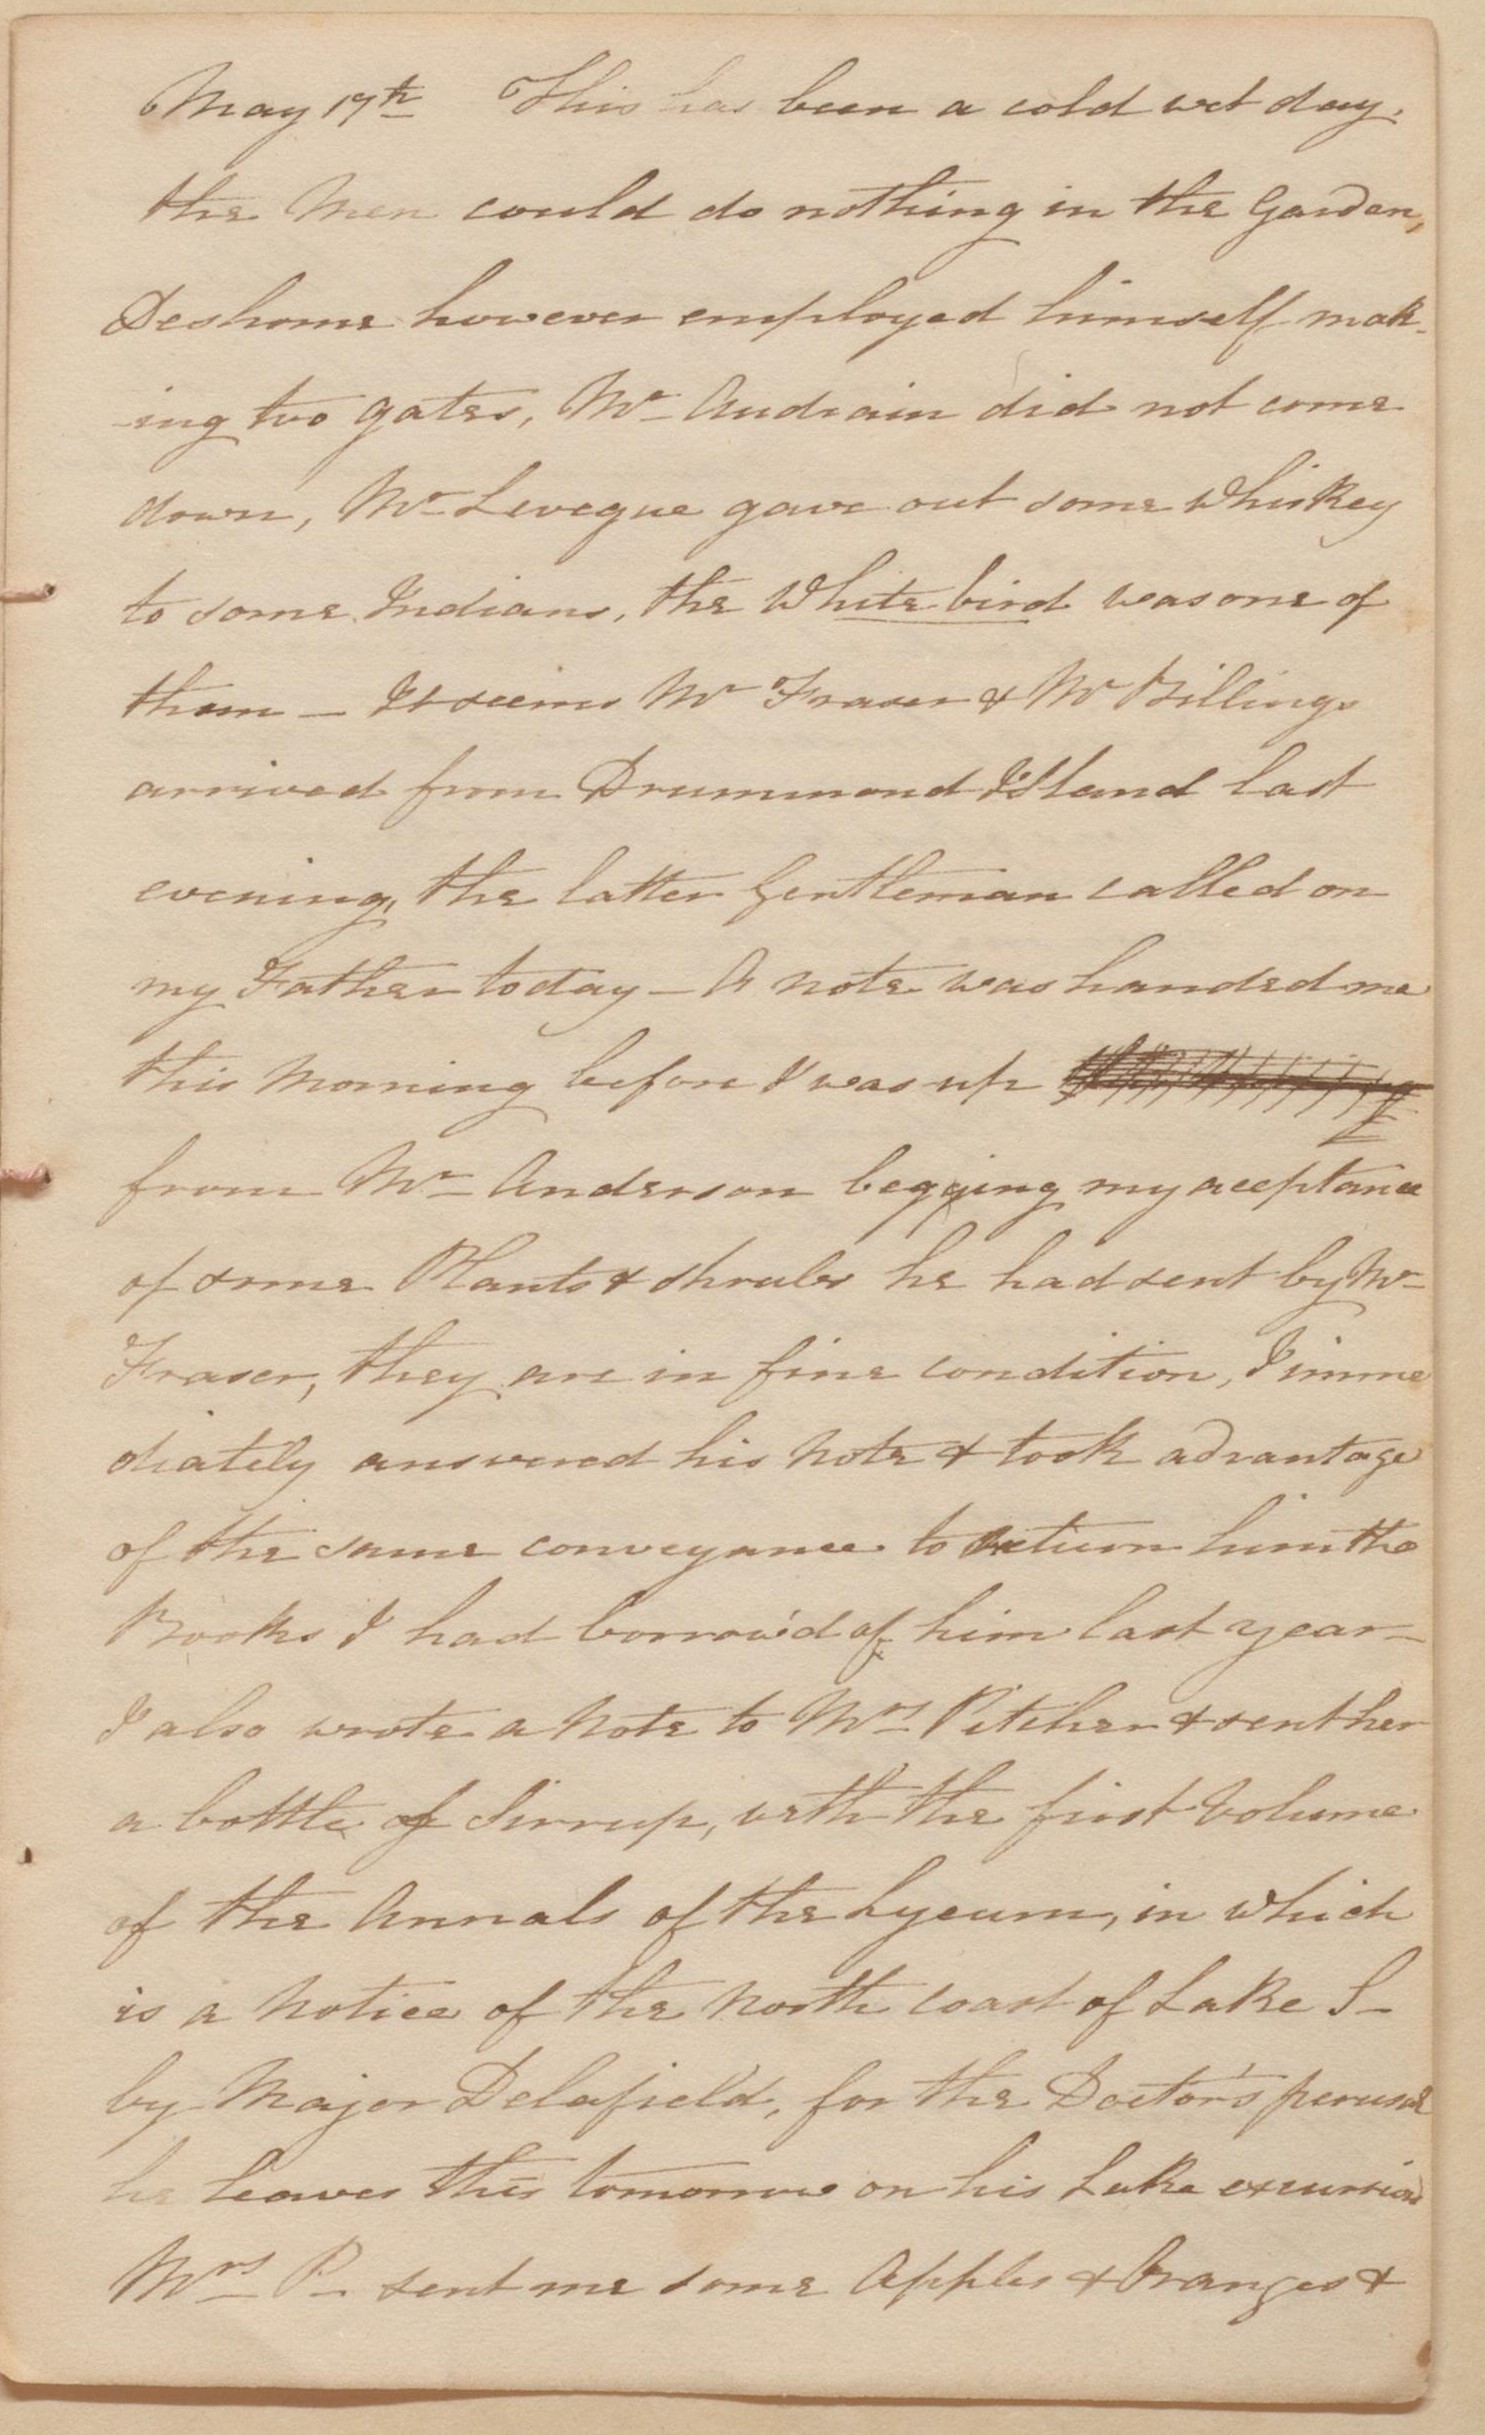 May 17th This has been a cold wet day.
the Men could do nothing in the Garden,
Deshome however employed himself mak-
ing two gates, Mr Audrain did not come
down, Mr Levegue gave out some Whiskey
to some Indians, the White bird was one of
them — It seems Mr Fraser & Mr Billings
arrived from Drummond Island last
evening, the latter Gentleman called on
my Father today — A note was handed me
this Morning before I was up
from Mr Anderson begging my aceptance
of some Plants & shrubs he had sent by Mr
Fraser, they are in fine condition, I imme
diately answered his Note & took advantage
of the same conveyance to return him the
Books I had borrow'd of him last year —
I also wrote a Note to Mrs Pitcher & sent her
a bottle of Sirrup, with the first Volume
of the Annals of the Lyceum, in which
is a Notice of the North coast of Lake S—
by Major Delafield, for the Doctor's perusal
he leaves this tomorrow on his Lake excursion
Mrs P— sent me some Apples & Oranges &